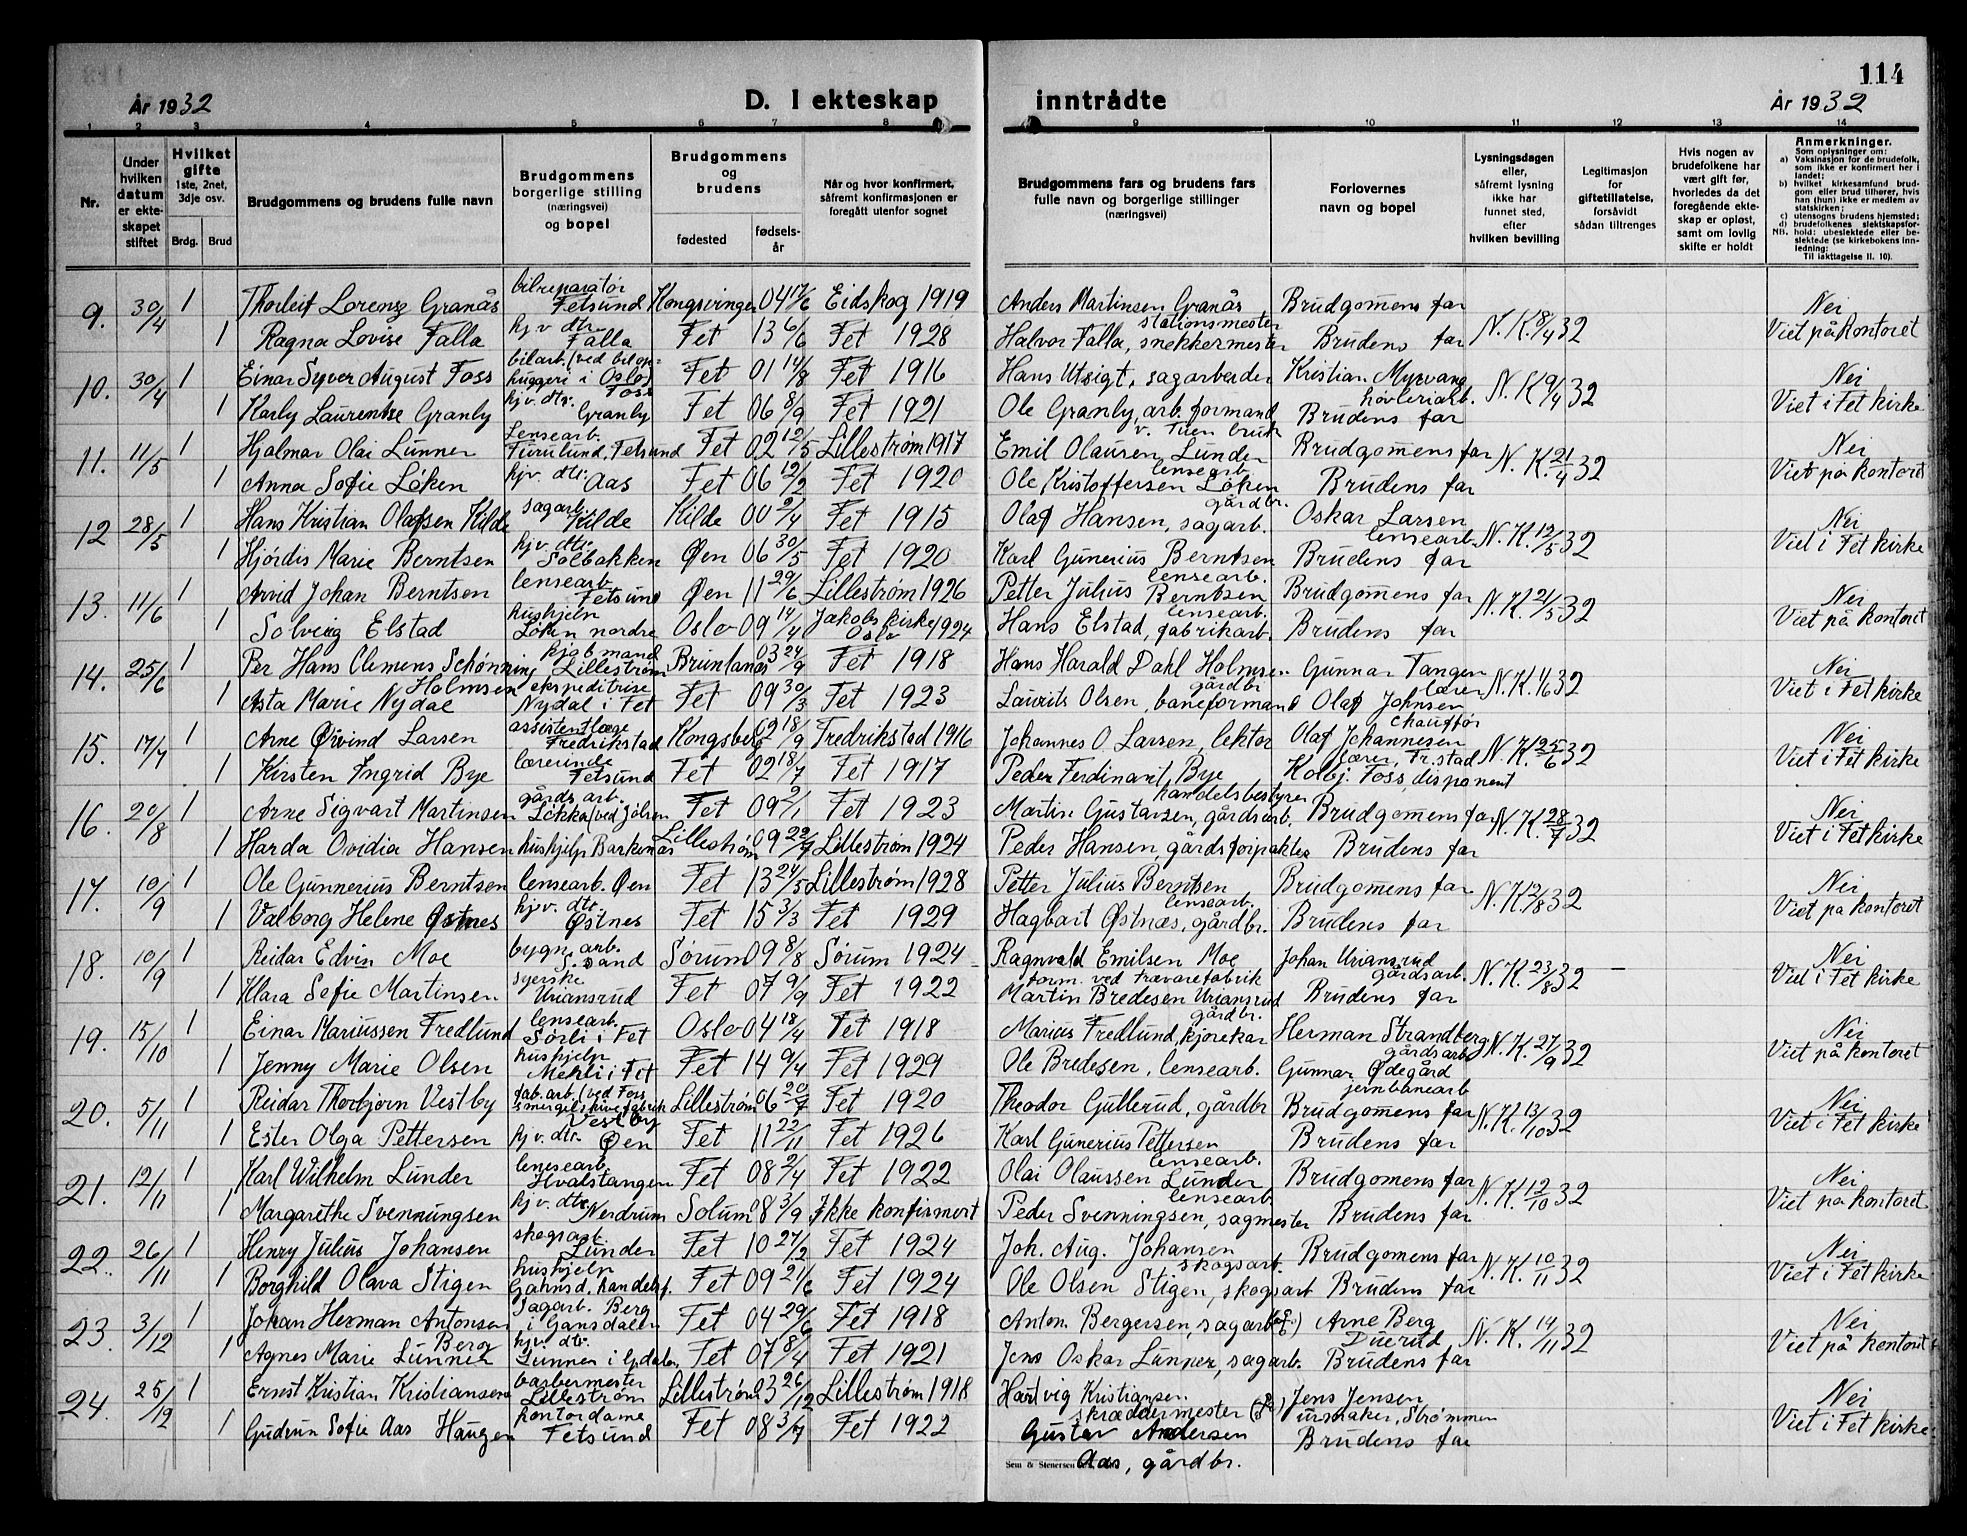 114
År 1932
D. I ekteskap inntrådte
År 1932
1 2 3 4 5 6 7 8 9 10 11 12 13 14
Nr.
Under hvilken datum er ekteskapet stiftet
Hvilket gifte 1ste, 2net, 3dje osv.
Brdg. Brud
Brudgommens og brudens fulle navn
Brudgommens borgerlige stilling (næringsvei) og bopel
Brudgommens og brudens
fødested
fødselsår
Når og hvor konfirmert, såfremt konfirmasjonen er foregått utenfor sognet
Brudgommens fars og brudens fars fulle navn og borgerlige stillinger (næringsvei)
Forlovernes navn og bopel
Lysningsdagen eller, såfremt lysning ikke har funnet sted, efter hvilken bevilling
Legitimasjon for giftetillatelse, forsåvidt sådan tiltrenges
Hvis nogen av brudefolkene har vært gift før, hvorledes da det foregående ekteskap er opløst, samt om lovlig skifte er holdt
Anmerkninger.
Som oplysninger om:
a) Vaksinasjon for de brudefolk, som ikke er konfirmert her i landet;
b) hvilket kirkesamfund brudgom eller brud tilhører, hvis han (hun) ikke er medlem av statskirken;
c) utensogns brudens hjemsted;
d) brudefolkenes slektskapsforhold: ubeslektede eller beslektede (se kirkebokens innledning:
NB. Til iakttagelse II. 10).
9. 30/4 1 Thorleif Lorenz Granås bilreparatør Fetsund Kongsvinger 04 17/6 Eidskog 1919 Anders Martinsen Granås stationsmester Brudgomens far N.K. 8/4 32 Nei
1 Ragna Lovise Falla hj.v. dtr. Falla Fet 13 6/6 Fet 1928 Halvor Falla, snekkermester Brudens far Viet på kontoret
10. 30/4 1 Einar Syver August Foss bilarb. (ved bilophuggeri i Oslo) Foss Fet 01 14/8 Fet 1916 Hans Utsigt, sagarbeider Kristian Myrvang høvleriarb. N.K. 9/4 32 Nei
1 Karly Laurentze Granby hj.v. dtr. Granby Fet 06 8/9 Fet 1921 Ole Granby, arb. formand v. Tuen bruk Brudens far Viet i Fet kirke
11. 11/5 1 Hjalmar Olai Lunner Lensearb. Furulund, Fetsund Fet 02 12/5 Lillestrøm 1917 Emil Olausen Lunder lensearb. Brudgomens far N.K. 21/4 32 Nei
1 Anna Sofie Løken hjv. dtr. Aas Fet 06 12/2 Fet 1920 Ole Kristoffersen Løken gårdbr. Brudens far Viet på kontoret
12 28/5 1 Hans Kristian Olafsen Kilde sagarb. Kilde Kilde 00 2/4 Fet 1915 Olaf Hansen, sagarb. Oskar Larsen lensearb. N.K. 12/5 32 Nei
1 Hjørdis Marie Berntsen hjv. dtr. Solbakken Øen 06 30/5 Fet 1920 Karl Gunerius Berntsen lensearb. Brudens far Viet i Fet kirke
13. 11/6 1 Arvid Johan Berntsen lensearb. Fetsund Øen 11 29/6 Lillestrøm 1926 Petter Julius Berntsen lensearb. Brudgomens far N.K. 21/5 32 Nei
1 Solveig Elstad hushjelp Løken nordre Oslo 09 14/4 Jakobs kirke Oslo 1924 Hans Elstad, fabrikarb. Brudens far Viet på kontoret
14. 25/6 1 Per Hans Clemens Schønning Holmsen kjøbmand Lillestrøm Brunlanes 03 24/9 Fet 1918 Hans Harald Dahl Holmsen gårdbr. Gunnar Tangen lærer N.K. 1/6 32 Nei
1 Asta Marie Nydal ekspeditrise Nydal i Fet Fet 09 30/3 Fet 1923 Laurits Olsen, baneformand Olaf Johnsen chauffør Viet i Fet kirke
15. 17/7 1 Arne Øivind Larsen assistentlæge Fredrikstad Kongsberg 02 18/9 Fredrikstad 1916 Johannes O. Larsen, lektor Olaf Johannesen lærer, Fr.stad N.K. 25/6 32 Nei
1 Kirsten Ingrid Bye lærerinde Fetsund Fet 02 18/7 Fet 1917 Peder Ferdinant Bye handelsbestyrer Kolbj. Foss, disponent Viet i Fet kirke
16. 20/8 1 Arne Sigvart Martinsen gårds arb. Løkka (ved Jølsen Fet 09 2/1 Fet 1923 Martin Gustavsen, gårdsarb. Brudgomens far N.K. 28/7 32 Nei
1 Harda Ovidia Hansen hushjelp Barkenås Lillestrøm 09 22/7 Lillestrøm 1924 Peder Hansen, gårdsforpakter Brudens far Viet i Fet kirke
17. 10/9 1 Ole Gunnerius Berntsen lensearb. Øen Fet 13 24/5 Lillestrøm 1928 Petter Julius Berntsen lensearb. Brudgomens far N.K. 12/8 32 Nei
1 Valborg Helene Østnes hj.v. dtr. Østnes Fet 15 3/3 Fet 1929 Hagbart Østnæs, gårdbr. Brudens far Viet på kontoret
18. 10/9 1 Reidar Edvin Moe bygn. arb. Sand Sørum 09 8/8 Sørum 1924 Ragnvald Emilsen Moe form. ved trævarefabrik Johan Uriansrud gårdsarb. N.K. 23/8 32 Nei
1 Klara Sofie Martinsen syerske Uriansrud Fet 07 9/9 Fet 1922 Martin Bredesen Uriansrud gårdbr. Brudens far Viet i Fet kirke
19. 15/10 1 Einar Mariussen Fredlund lensearb. Sørli i Fet Oslo 04 18/4 Fet 1918 Marius Fredlund, kjørekar Herman Strandberg gårdsarb. N.K. 27/9 32 Nei
1 Jenny Marie Olsen hushjelp Mehli i Fet Fet 14 9/4 Fet 1929 Ole Bredesen, lensearb. Gunnar Ødegård jernbanearb Viet på kontoret
20. 5/11 1 Reidar Thorbjørn Vestby fab. arb. (ved Foss smergelskivefabrik Vestby Lillestrøm 06 20/7 Fet 1920 Theodor Gullerud, gårdbr Brudgomens far N.K. 13/10 32 Nei
1 Ester Olga Pettersen hj.v. dtr. Øen Fet 11 22/11 Fet 1926 Karl Gunerius Pettersen lensearb. Brudens far Viet i Fet kirke
21. 12/11 1 Karl Wilhelm Lunder lensearb. Hvalstangen Fet 08 2/4 Fet 1922 Olai Olaussen Lunder lensearb Brudgomens far N.K. 12/10 32 Nei
1 Margarethe Svennungsen hj.v. dtr. Nerdrum Solum 08 3/9 Ikke konfirmert Peder Svenningsen, sagmester Brudens far Viet på kontoret
22. 26/11 1 Henry Julius Johansen skogsarb. Lunder Fet 10 27/2 Fet 1924 Joh. Aug. Johansen skogsarb. Brudgomens far N.K. 10/11 32 Nei
1 Borghild Olava Stigen hushjelp Gansd. handelsf. Fet 09 21/6 Fet 1924 Ole Olsen Stigen, skogsarb Brudens far Viet i Fet kirke
23. 3/12 1 Johan Herman Antonsen Berg sagarb. Berg i Gansdalen Fet 04 29/6 Fet 1918 Anton Bergersen, sagarb Arne Berg Duerud N.K. 14/11 32 Nei
1 Agnes Marie Lunner hj.v. dtr. Lunner i Gdalen Fet 07 8/4 Fet 1921 Jens Oskar Lunner, sagarb. Brudens far Viet på kontoret
24. 25/12 1 Ernst Kristian Kristiansen barbermester Lillestrøm Lillestrøm 03 26/12 Lillestrøm 1918 Hartvig Kristiansen skræddermester Jens Jensen urmaker, Strømmen Nei
1 Gudrun Sofie Aas Haugen kontordame Fetsund Fet 08 3/7 Fet 1922 Gustav Andersen Aas, gårdbr. Brudens far Viet i Fet kirke
Sem & Stenersen